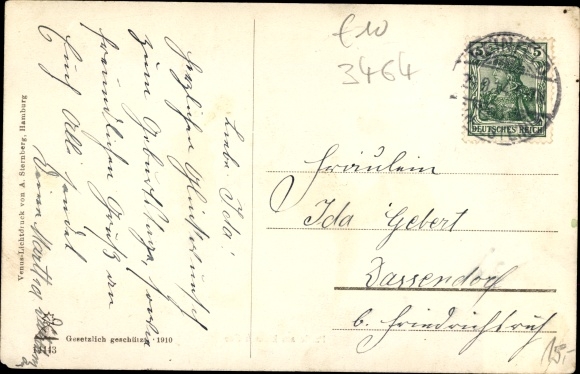 Liebe Ida!
Herzlichen Glückwunsch
zum Geburtstage, sowie
freundlichen Gruß an
Euch Alle sendet
Deine Martha
Fräulein
Ida Gebert
Dassendorf
b. Friedrichsruh
£10
3464
5
DEUTSCHES REICH
Venus-Lichtdruck von A. Sternberg, Hamburg
Gesetzlich geschützt · 1910
15.-